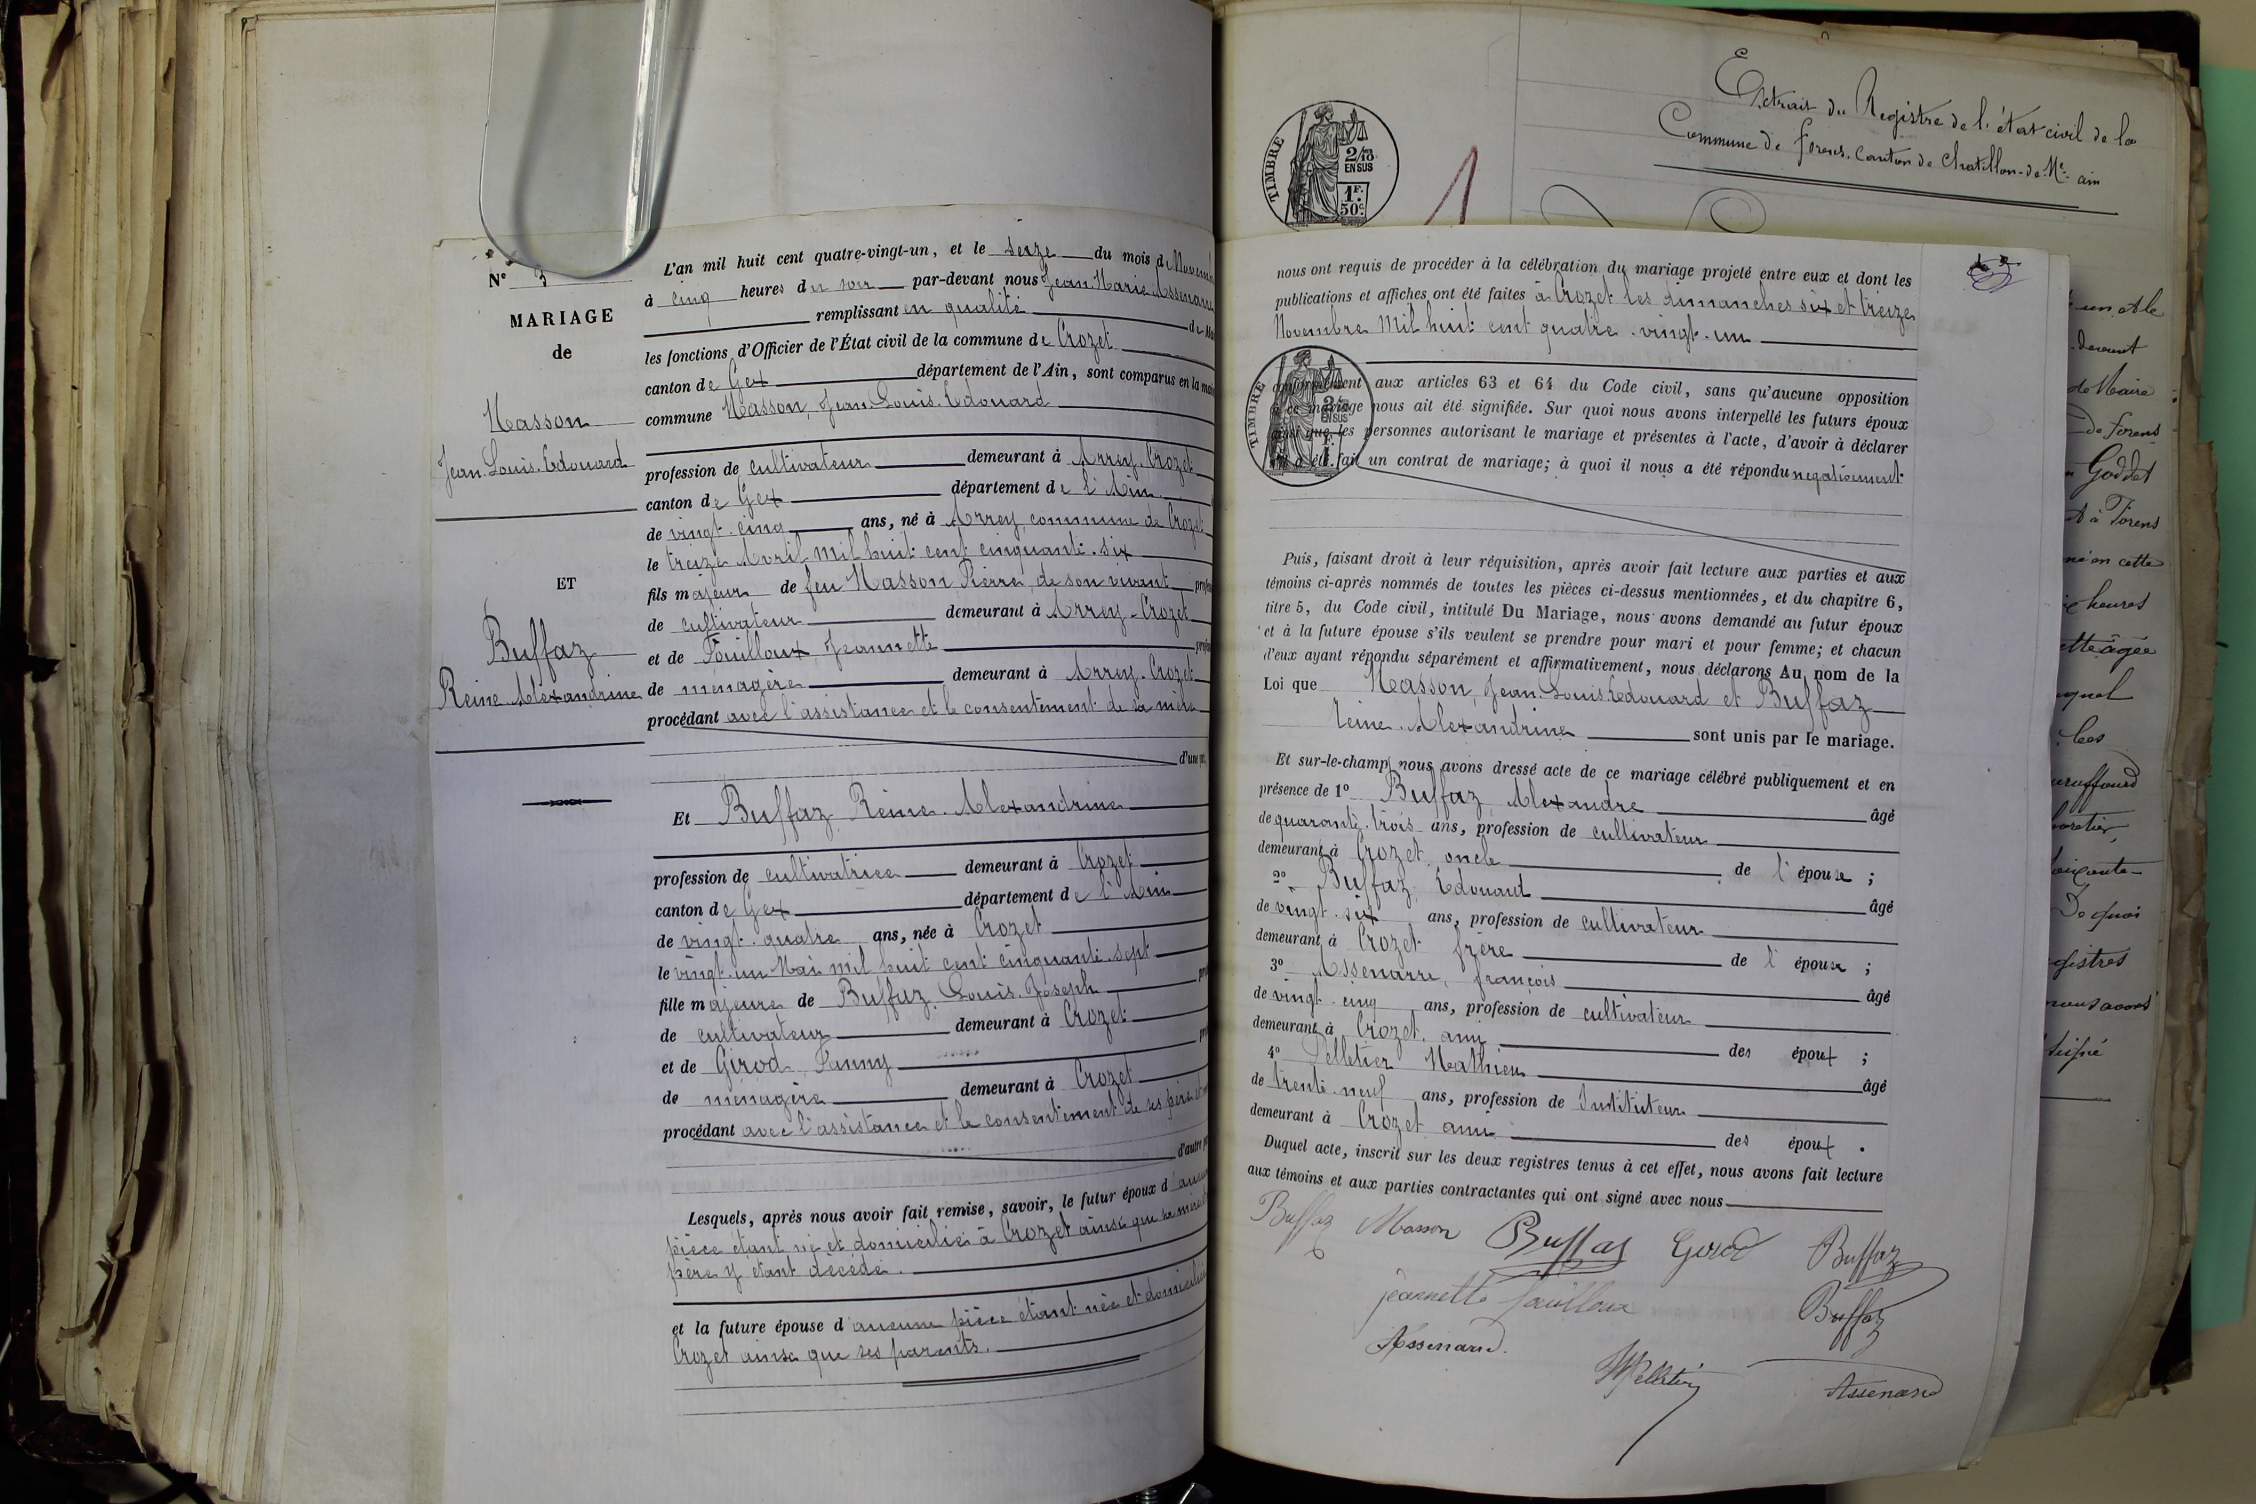 N° 7
MARIAGE
de
Masson
Jean-Louis-Edouard
ET
Buffaz
Reine-Alexandrine
L'an mil huit cent quatre-vingt-un, et le seize du mois de Novembre
à cinq heures du soir par-devant nous Jean Marie Assenare
remplissant en qualité de
les fonctions d'Officier de l'État civil de la commune de Crozet
canton de Gex département de l'Ain, sont comparus en la
commune Masson, Jean-Louis-Edouard
profession de cultivateur demeurant à Arrey-Crozet
canton de Gex département de l'Ain
de vingt-cinq ans, né à Arrey, commune de Crozet
le treize Avril mil huit cent cinquante-six
fils majeur de feu Masson Pierre, de son vivant
de cultivateur demeurant à Arrey-Crozet
et de Fouilloux, Jeannette
de ménagère demeurant à Arrey-Crozet
procédant avec l'assistance et le consentement de sa mère
d'une
Et Buffaz Reine-Alexandrine
profession de cultivatrice demeurant à Crozet
canton de Gex département de l'Ain
de vingt-quatre ans, née à Crozet
le vingt-un Mai mil huit cent cinquante-sept
fille majeure de Buffaz Louis-Joseph
de cultivateur demeurant à Crozet
et de Girod Fanny
de ménagère demeurant à Crozet
procédant avec l'assistance et le consentement de ses père et
d'autre
Lesquels, après nous avoir fait remise, savoir, le futur époux d'aucune
pièce étant né et domicilié à Crozet ainsi que sa mère et
père y étant décédé.
et la future épouse d'aucune pièce étant née et domiciliée
Crozet ainsi que ses parents.
TIMBRE
2/10 EN SUS
1F. 50c.
Extrait du Registre de l'état civil de la
Commune de Forens, Canton de Chatillon-de-Mle ain
nous ont requis de procéder à la célébration du mariage projeté entre eux et dont les
publications et affiches ont été faites à Crozet les dimanches six et treize
Novembre Mil huit cent quatre-vingt-un
TIMBRE
EN SUS
conformément aux articles 63 et 64 du Code civil, sans qu'aucune opposition
à ce mariage nous ait été signifiée. Sur quoi nous avons interpellé les futurs époux
ainsi que les personnes autorisant le mariage et présentes à l'acte, d'avoir à déclarer
s'il a été fait un contrat de mariage; à quoi il nous a été répondu négativement.
Puis, faisant droit à leur réquisition, après avoir fait lecture aux parties et aux
témoins ci-après nommés de toutes les pièces ci-dessus mentionnées, et du chapitre 6,
titre 5, du Code civil, intitulé Du Mariage, nous avons demandé au futur époux
et à la future épouse s'ils veulent se prendre pour mari et pour femme; et chacun
d'eux ayant répondu séparément et affirmativement, nous déclarons Au nom de la
Loi que Masson, Jean-Louis-Edouard et Buffaz
reine-Alexandrine sont unis par le mariage.
Et sur-le-champ nous avons dressé acte de ce mariage célébré publiquement et en
présence de 1° Buffaz Alexandre âgé
de quarante-trois ans, profession de cultivateur
demeurant à Crozet, oncle de l'épouse ;
2° Buffaz, Edouard âgé
de vingt-six ans, profession de cultivateur
demeurant à Crozet frère de l'épouse ;
3° Assenarre, françois âgé
de vingt-cinq ans, profession de cultivateur
demeurant à Crozet, ami des époux ;
4° Pelletier Mathieu âgé
de trente-neuf ans, profession de Instituteur
demeurant à Crozet ami des époux .
Duquel acte, inscrit sur les deux registres tenus à cet effet, nous avons fait lecture
aux témoins et aux parties contractantes qui ont signé avec nous
Buffaz Masson Buffas Girod Buffaz
jeannette fouilloux Buffaz
Assenard.
MPelletier Assenard
un et le
devant
de Maire
de Forens
Goddet
à Forens
né en cette
heures
âgée
les
De quoi
nous avons
signé